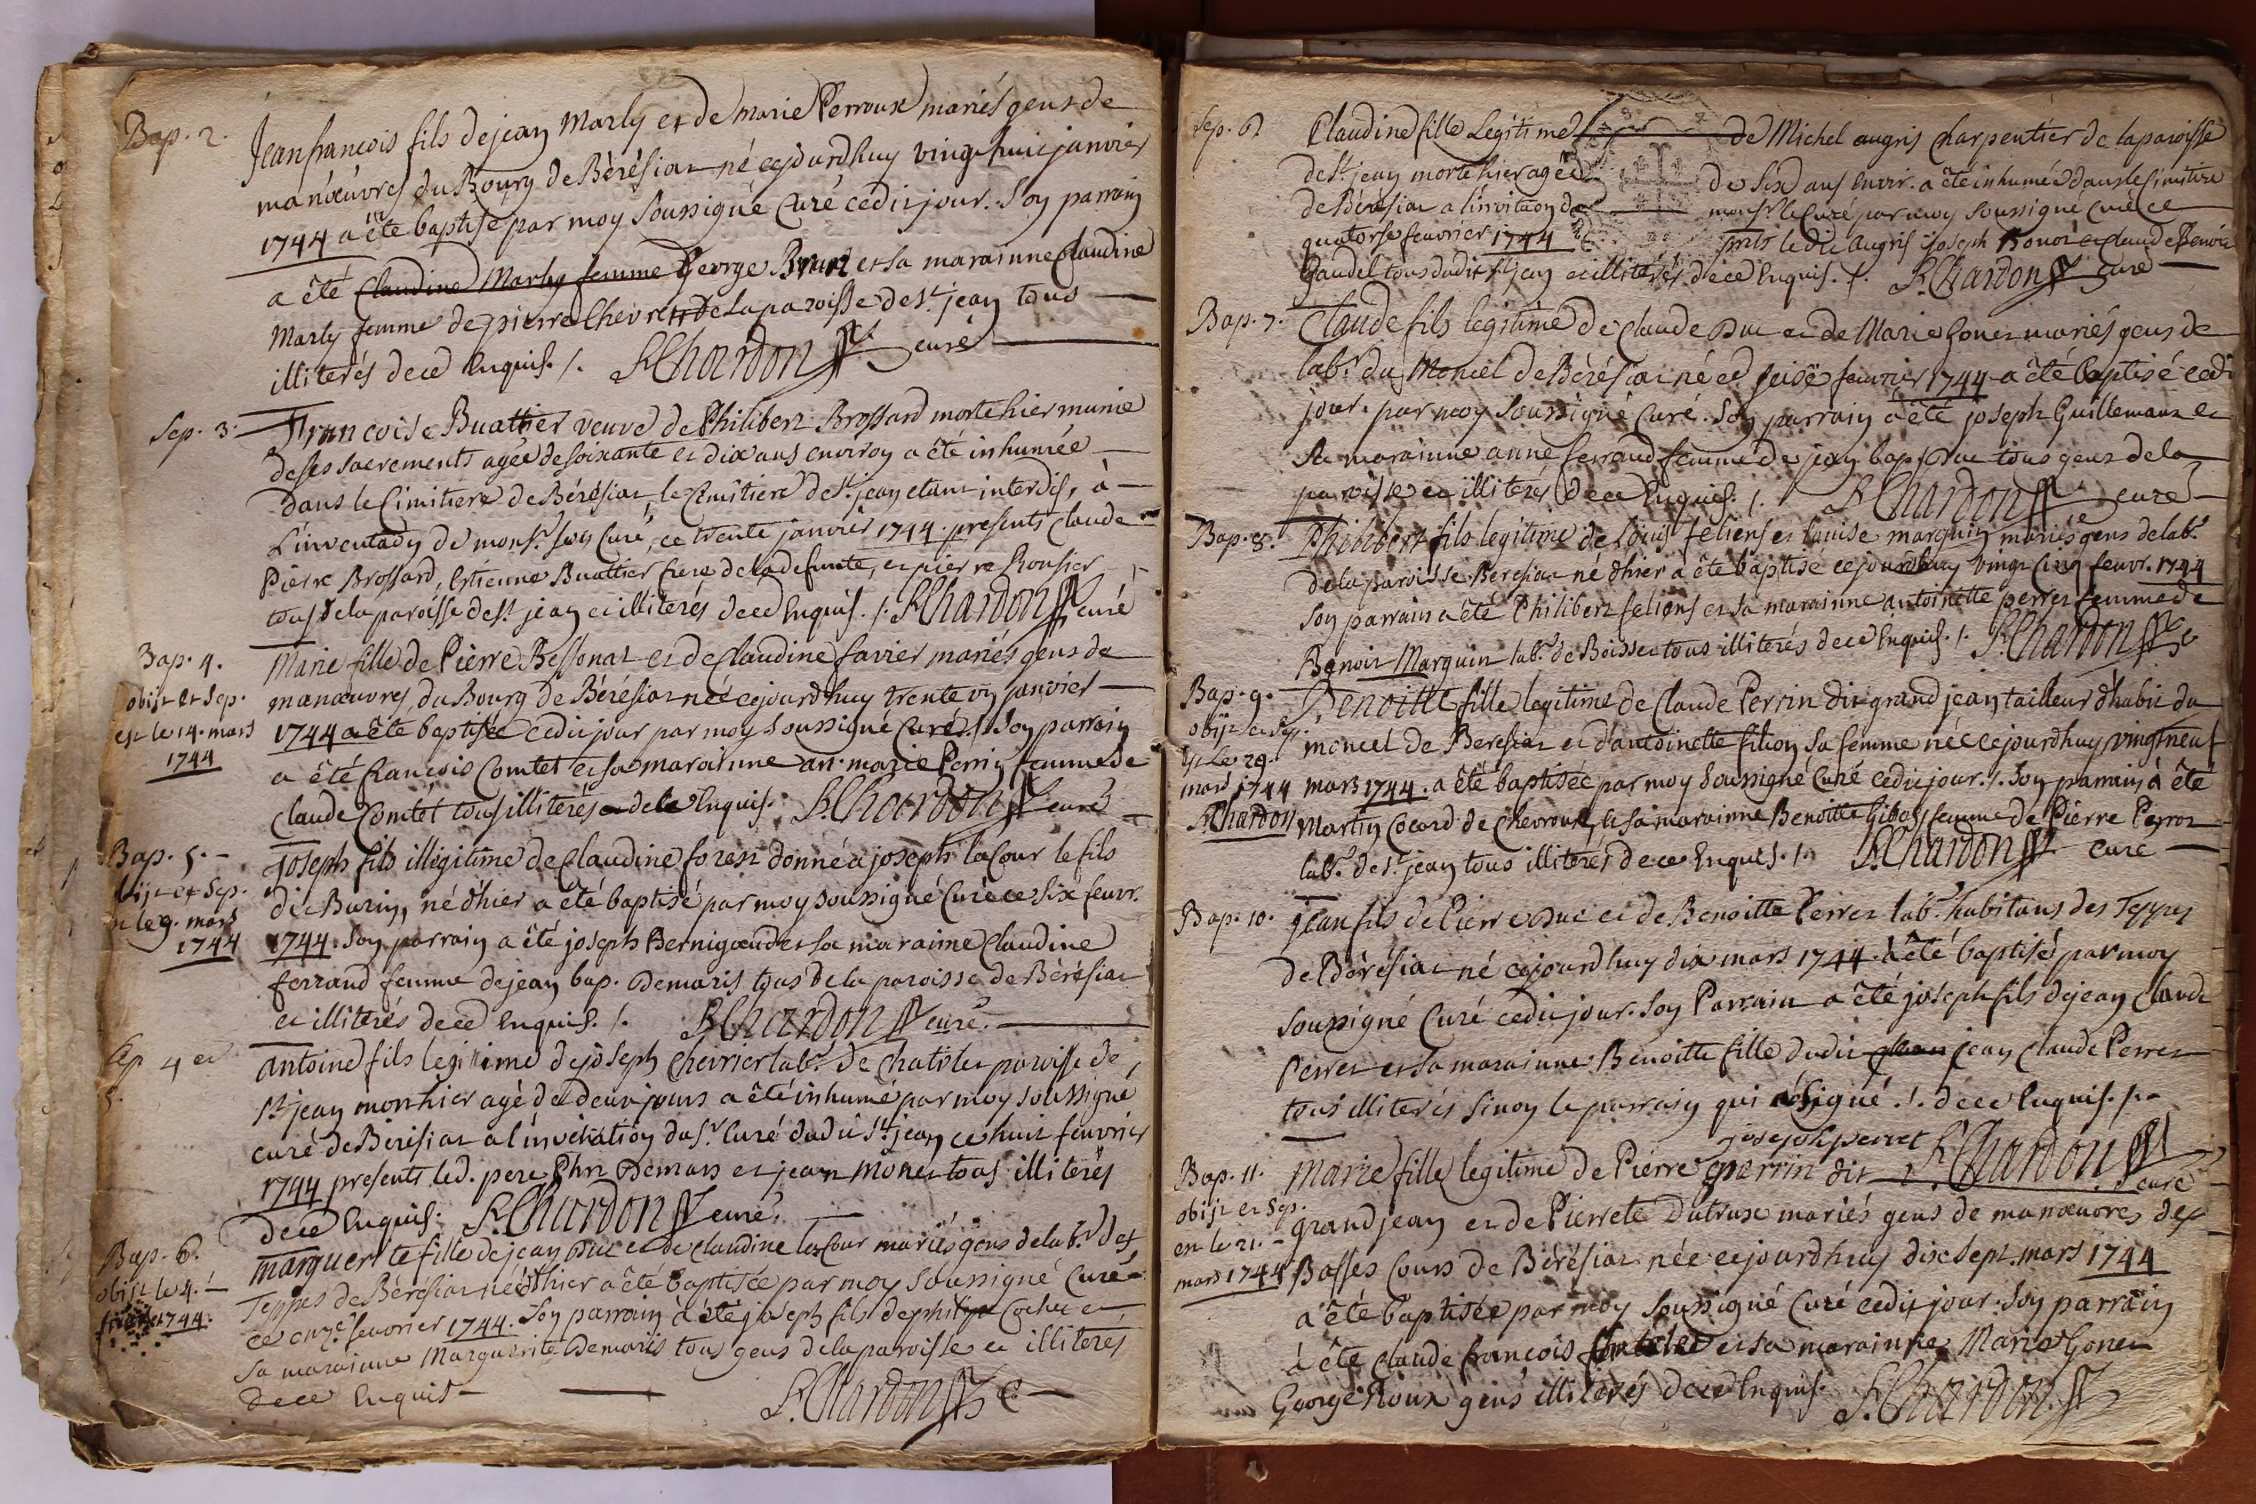 Bap. 2.
Jean françois fils de jean Marly et de Marie Perroux mariés gens de
manœuvres du Bourg de Bérésiat né cejourdhuy vingt huit janvier
1744 a été baptisé par moy soussigné Curé cedit jour. Son parrain
a été Claudine Marly femme George Brun et sa marainne Claudine
Marly femme de pierre Chevret de la paroisse de St. jean tous
illiterés de ce Enquis. /. R. Chardon curé
Sep. 3.
Francoise Buattier veuve de Philibert Brossard morte hier munie
de ses sacrements agée de soixante et dix ans environ a été inhumée
dans le Cimitiere de Bérésiat le Cimitiere de St. jean etant interdit, à
de monsr. son Curé, ce trente janvier 1744. presents Claude
Pierre Brossard, Estienne Buattier frere de la defunte, et pierre Rousset
tous de la paroisse de St. jean et illiterés de ce Enquis. /. R. Chardon curé
Bap. 4.
obijt et Sep.
est le 14. mars
1744
Marie fille de Pierre Bessonat et de Claudine favier mariés gens de
manœuvres, du Bourg de Bérésiat née cejourdhuy trente un janvier
1744 a été baptisée cedit jour par moy soussigné Curé. /. Son parrain
a été francois Comtet et sa marainne an: marie Perrin femme de
Claude Comtet tous illiterés de ce Enquis. R. Chardon curé
Bap. 5.
obijt et Sep.
est le 9. mars
1744
Joseph fils illégitime de Claudine forest donné à joseph lacour le fils
dit Burin, né d'hier a été baptisé par moy soussigné Curé ce six feuvr.
1744. Son parrain a été joseph Bernigaud et sa maraine Claudine
ferrand femme de jean bap. Demaris tous de la paroisse de Bérésiat
et illiterés de ce Enquis. /. R. Chardon curé.
Sep 4 et
5.
Antoine fils legitime de joseph Chevrier labr. de Chatelet paroisse de
St. jean mort hier agé de deux jours a été inhumé par moy soussigné
curé de Bérésiat a l'invitation du Sr. Curé dudit St. jean ce huit feuvrier
1744 presents led. pere Demaris et jean Monet tous illiterés
de ce Enquis. R. Chardon curé.
Bap. 6.
obijt le 4.
1744.
Marguerite fille de jean Duc et de Claudine lacour mariés gens de labr. des
Teppes de Bérésiat née d'hier a été baptisée par moy soussigné Curé
ce onze. feuvrier 1744. Son parrain a été joseph fils de philipe Cochet et
sa marainne Marguerite Demaris tous gens de la paroisse et illiterés
de ce Enquis. R. Chardon c.
Sep. 6.
Claudine fille Legitime de Michel augris Charpentier de la paroisse
de St. jean morte hier agée de six ans envir. a été inhumée dans le Cimitiere
de Bérésiat a l'invitaon de monsr. le Curé par moy soussigné curé ce
quatorse feuvrier 1744 pnts le dit augris joseph Bonot et claude Benoit
Gaudet tous dudit St. jean et illiterés de ce Enquis. /. R. Chardon curé
Bap. 7.
Claude fils legitime de Claude Duc et de Marie Gonet mariés gens de
labr. du Moncel de Bérésiat né ce seise feuvrier 1744 a été baptisé cedi
jour. par moy soussigné Curé. Son parrain a été joseph Guillemaut et
sa marainne anne ferrand femme de jean bap. Duc tous gens de la
paroisse et illiterés de ce Enquis. /. R. Chardon curé
Bap. 8.
Philibert fils legitime de Loüis feliens et loüise marguin mariés gens de labr.
de la paroisse Beresiat né d'hier a été baptisé cejourdhuy vingt cinq feuvr. 1744
Son parrain a été Philibert feliens et sa marainne antoinette perret femme de
Benoit Marguin labr. de Boisset tous illiterés de ce Enquis. /. R. Chardon c
Bap. 9.
obijt et Sep.
est le 29.
mars 1744
R. Chardon
Benoitte fille legitime de Claude Perrin dit grand jean tailleur d'habit du
moncel de Beresiat et d'antoinette filion sa femme née cejourdhuy vingt neuf
mars 1744. a été baptisée par moy soussigné Curé cedit jour. /. Son parrain a été
Martin Cocard de Chevroux, et sa marainne Benoitte Gibon femme de Pierre Perrot
labr. de St. jean tous illiterés de ce Enquis. /. R. Chardon curé
Bap. 10.
Jean fils de Pierre Duc et de Benoitte Perret labr. habitans des Teppes
de Bérésiat né cejourdhuy dix mars 1744. a été baptisé par moy
soussigné Curé cedit jour. Son Parrain a été joseph fils de jean Claude
Perret et sa marainne Benoitte fille dudit jean Claude Perret
tous illiterés sinon le parrain qui a signé. /. de ce Enquis. /.
joseph perret R. Chardon curé
Bap. 11.
obijt et Sep.
est le 21.
mars 1744
Marie fille legitime de Pierre perrin dit
grand jean et de Pierrete Dutrux mariés gens de manœuvres des
Basses Cours de Bérésiat née cejourdhuy dix sept. mars 1744
a été baptisée par moy soussigné Curé cedit jour. Son parrain
a été Claude francois et sa marainne Marie Gonet
George Roux gens illiterés de ce Enquis. R. Chardon.